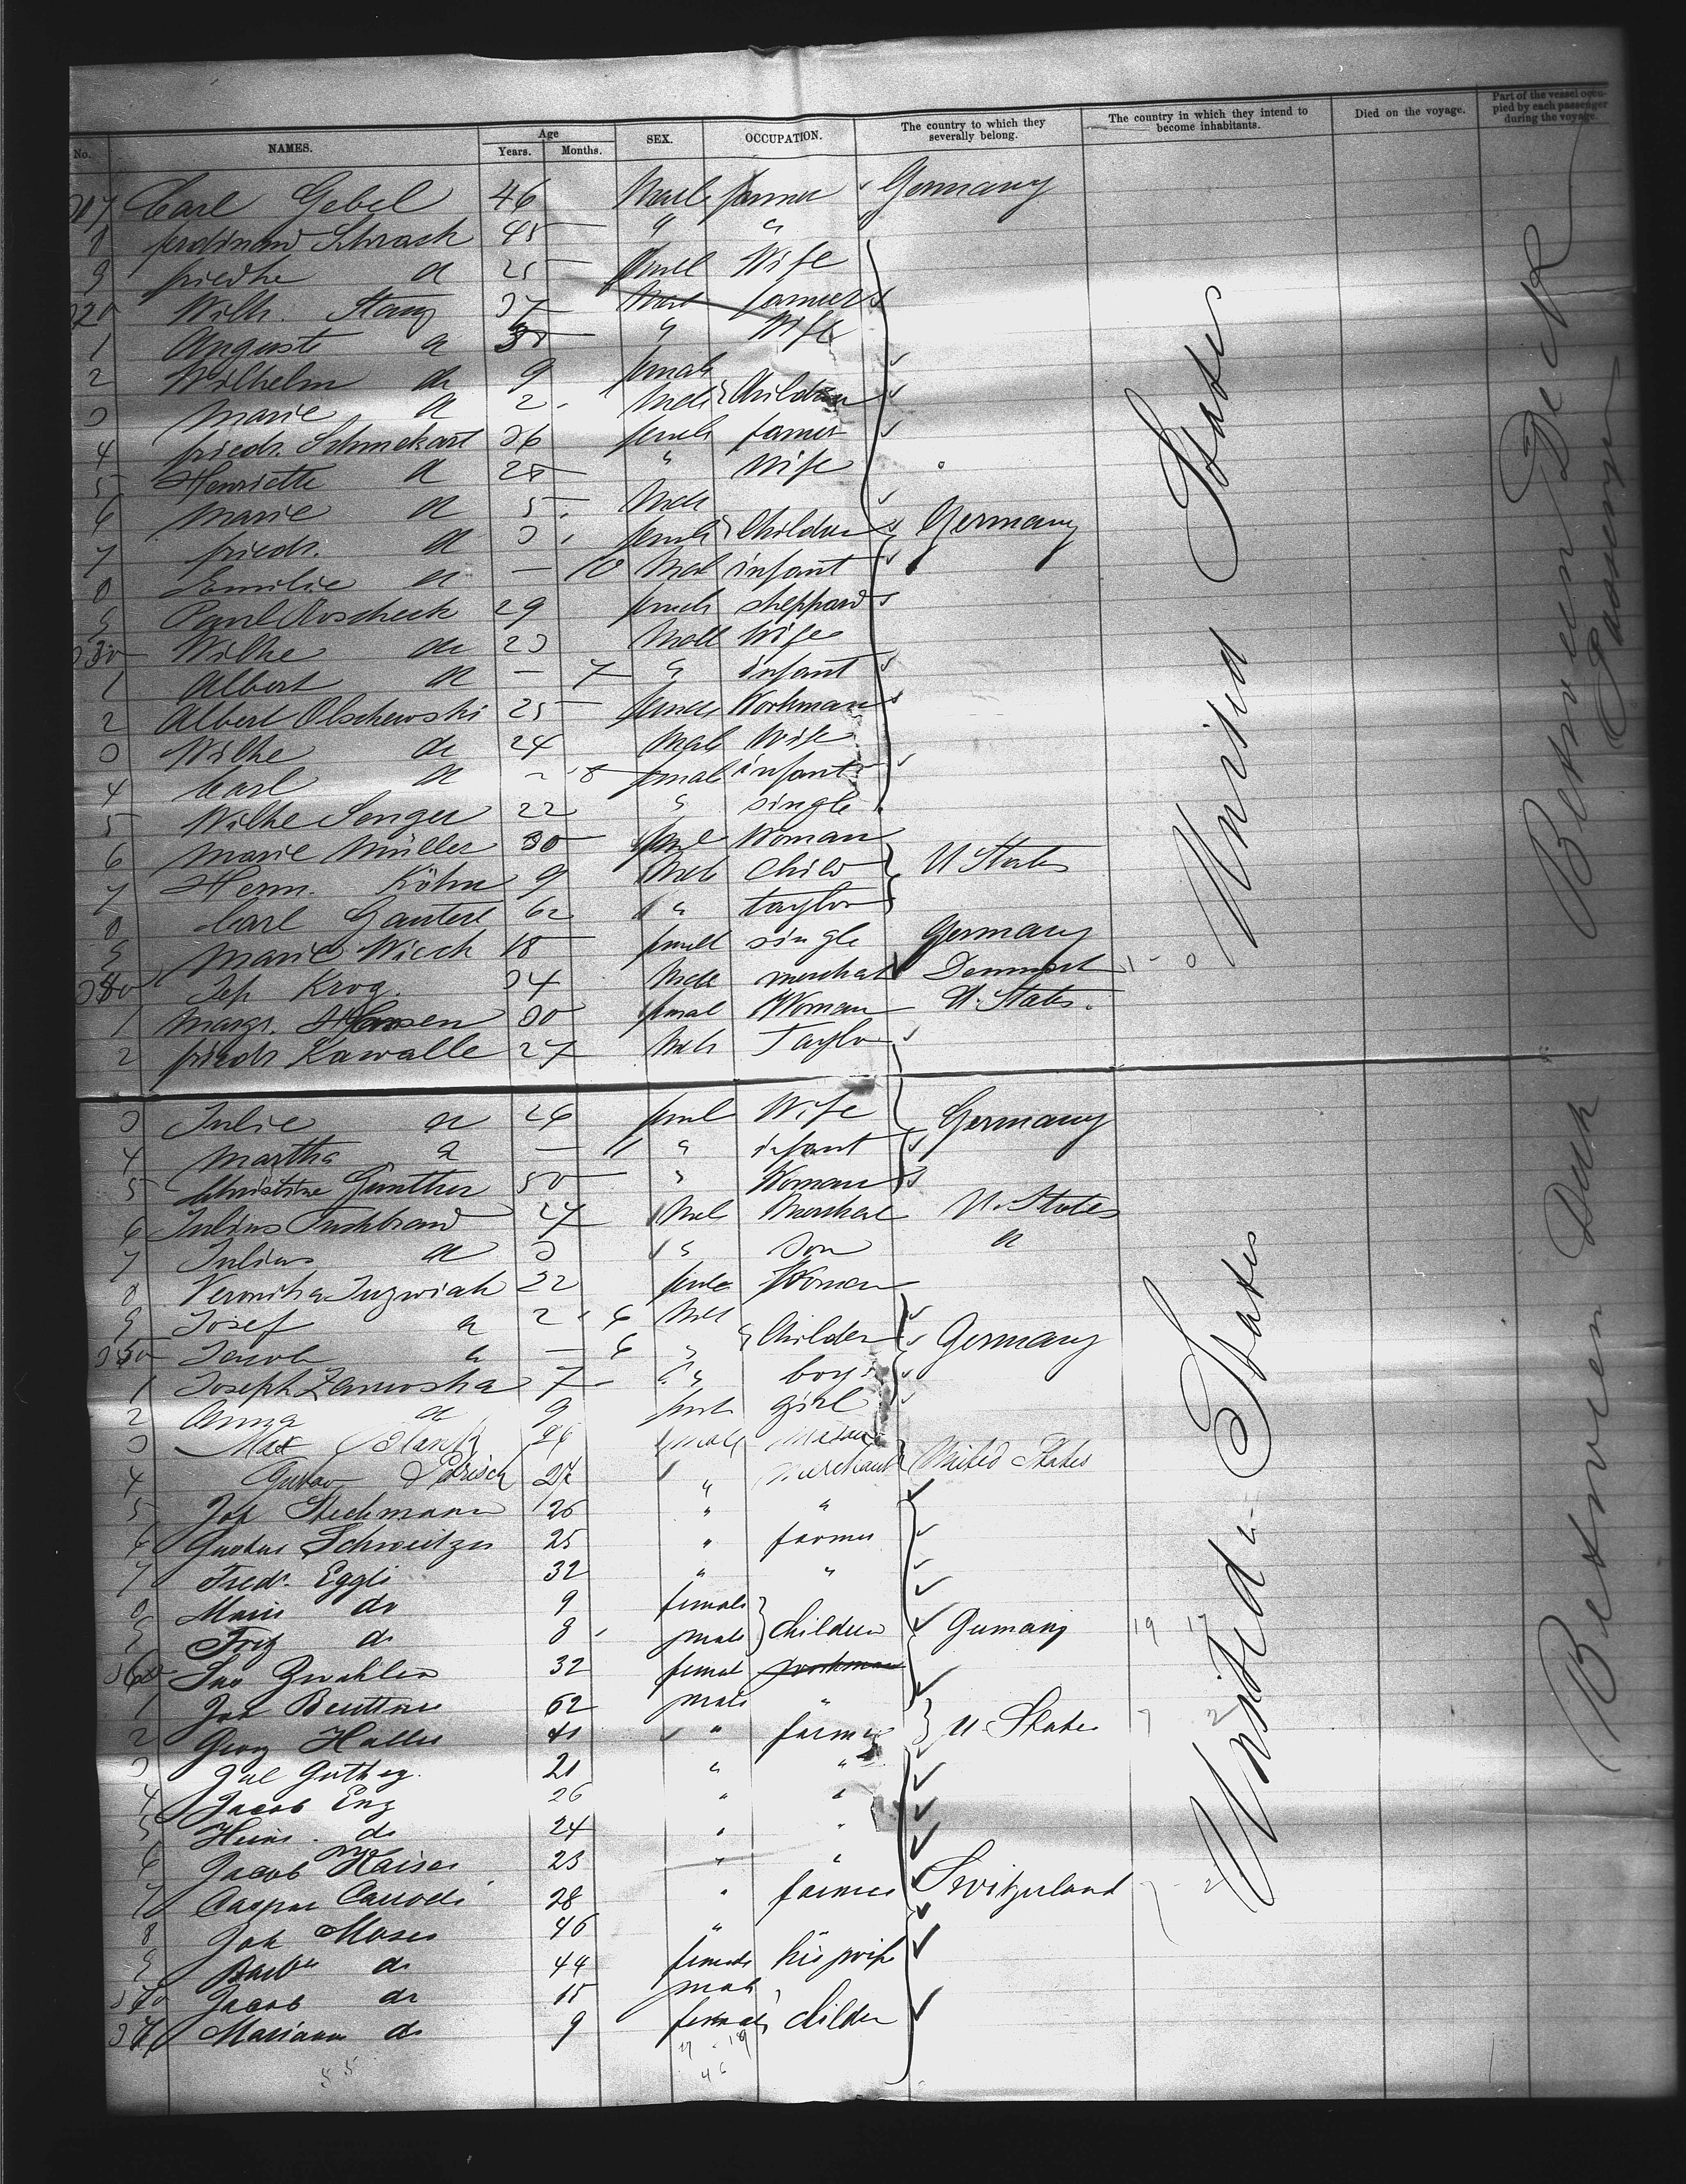 No. NAMES. Age Years. Months. SEX. OCCUPATION. The country to which they severally belong. The country in which they intend to become inhabitants. Died on the voyage. Part of the vessel occupied by each passenger during the voyage.
Carl Gebel 46 Male farmer Germany
8 Ferdinand Schrack 45 " "
9 Friedke a 25 Wife
320 Wilh. Stang 37 Male farmer
1 Auguste a Wife
2 Wilhelm do 9 female
3 Marie a 2 Male Children
4 Friedr. Schmekart 36 female farmer
5 Henriette a 28 " Wife
6 Marie a 5 Male
7 Friedr. a 3 female Children Germany
8 Emilie a — 10 Male infant
9 Paul Roscheck 29 female sheppard
330 Wilhe do 23 Male Wife
1 Albert a — 7 " infant
2 Albert Olschewski 25 female Workman
3 Wilhe do 24 Male Wife
4 Carl a — 8 female infant
5 Wilhe Senger 22 " single
6 Marie Müller 30 female Woman
7 Herm. Köhn 9 Male Child U States
8 Carl Gautert 62 " taylor
9 Marie Wiech 18 female single Germany
340 Jep Krog. 34 Male merchat Denmark
1 Margr. Hansen 30 female Woman U. States.
2 Friedr Kawalle 27 Male Taylor
United States
Between Deck Passenger
3 Julie a 26 female Wife Germany
4 Martha a — 11 " infant
5 Christine Günther 50 " Woman
6 Julius 27 Male Merchat U. States
7 Julius a 3 " Son a
8 Veronika Juzwiak 22 female Woman
9 Josef a 2 6 Male
350 Jacob a — 6 " Childer Germany
1 Joseph Zamoska 7 " boy
2 Anna a 9 female girl
3 Max Blank male
4 Gustav 27 " Merchant United States
5 Joh Stechmann 26 " "
6 Gustav Schweitzer 25 " farmer
7 Fredr. Eggli 32 " "
8 Marie do 9 female
9 Fritz do 8 male Children Germany 19 17
360 Zwahlen 32 female workman
1 Beuttner 62 male "
2 Georg Haller 41 " farmer U. States 7 2
3 21 " "
4 Jacob Eng 26 " "
5 Heinr. do 24 " "
6 Jacob Kaiser 23 " "
7 Caspar Carrodi 28 " farmer Switzerland
8 Joh Moser 46 "
9 do 44 female his wife
370 Jacob do 15 male
371 Mariann do 9 female childer
United States
Between Deck
55
17 19
46